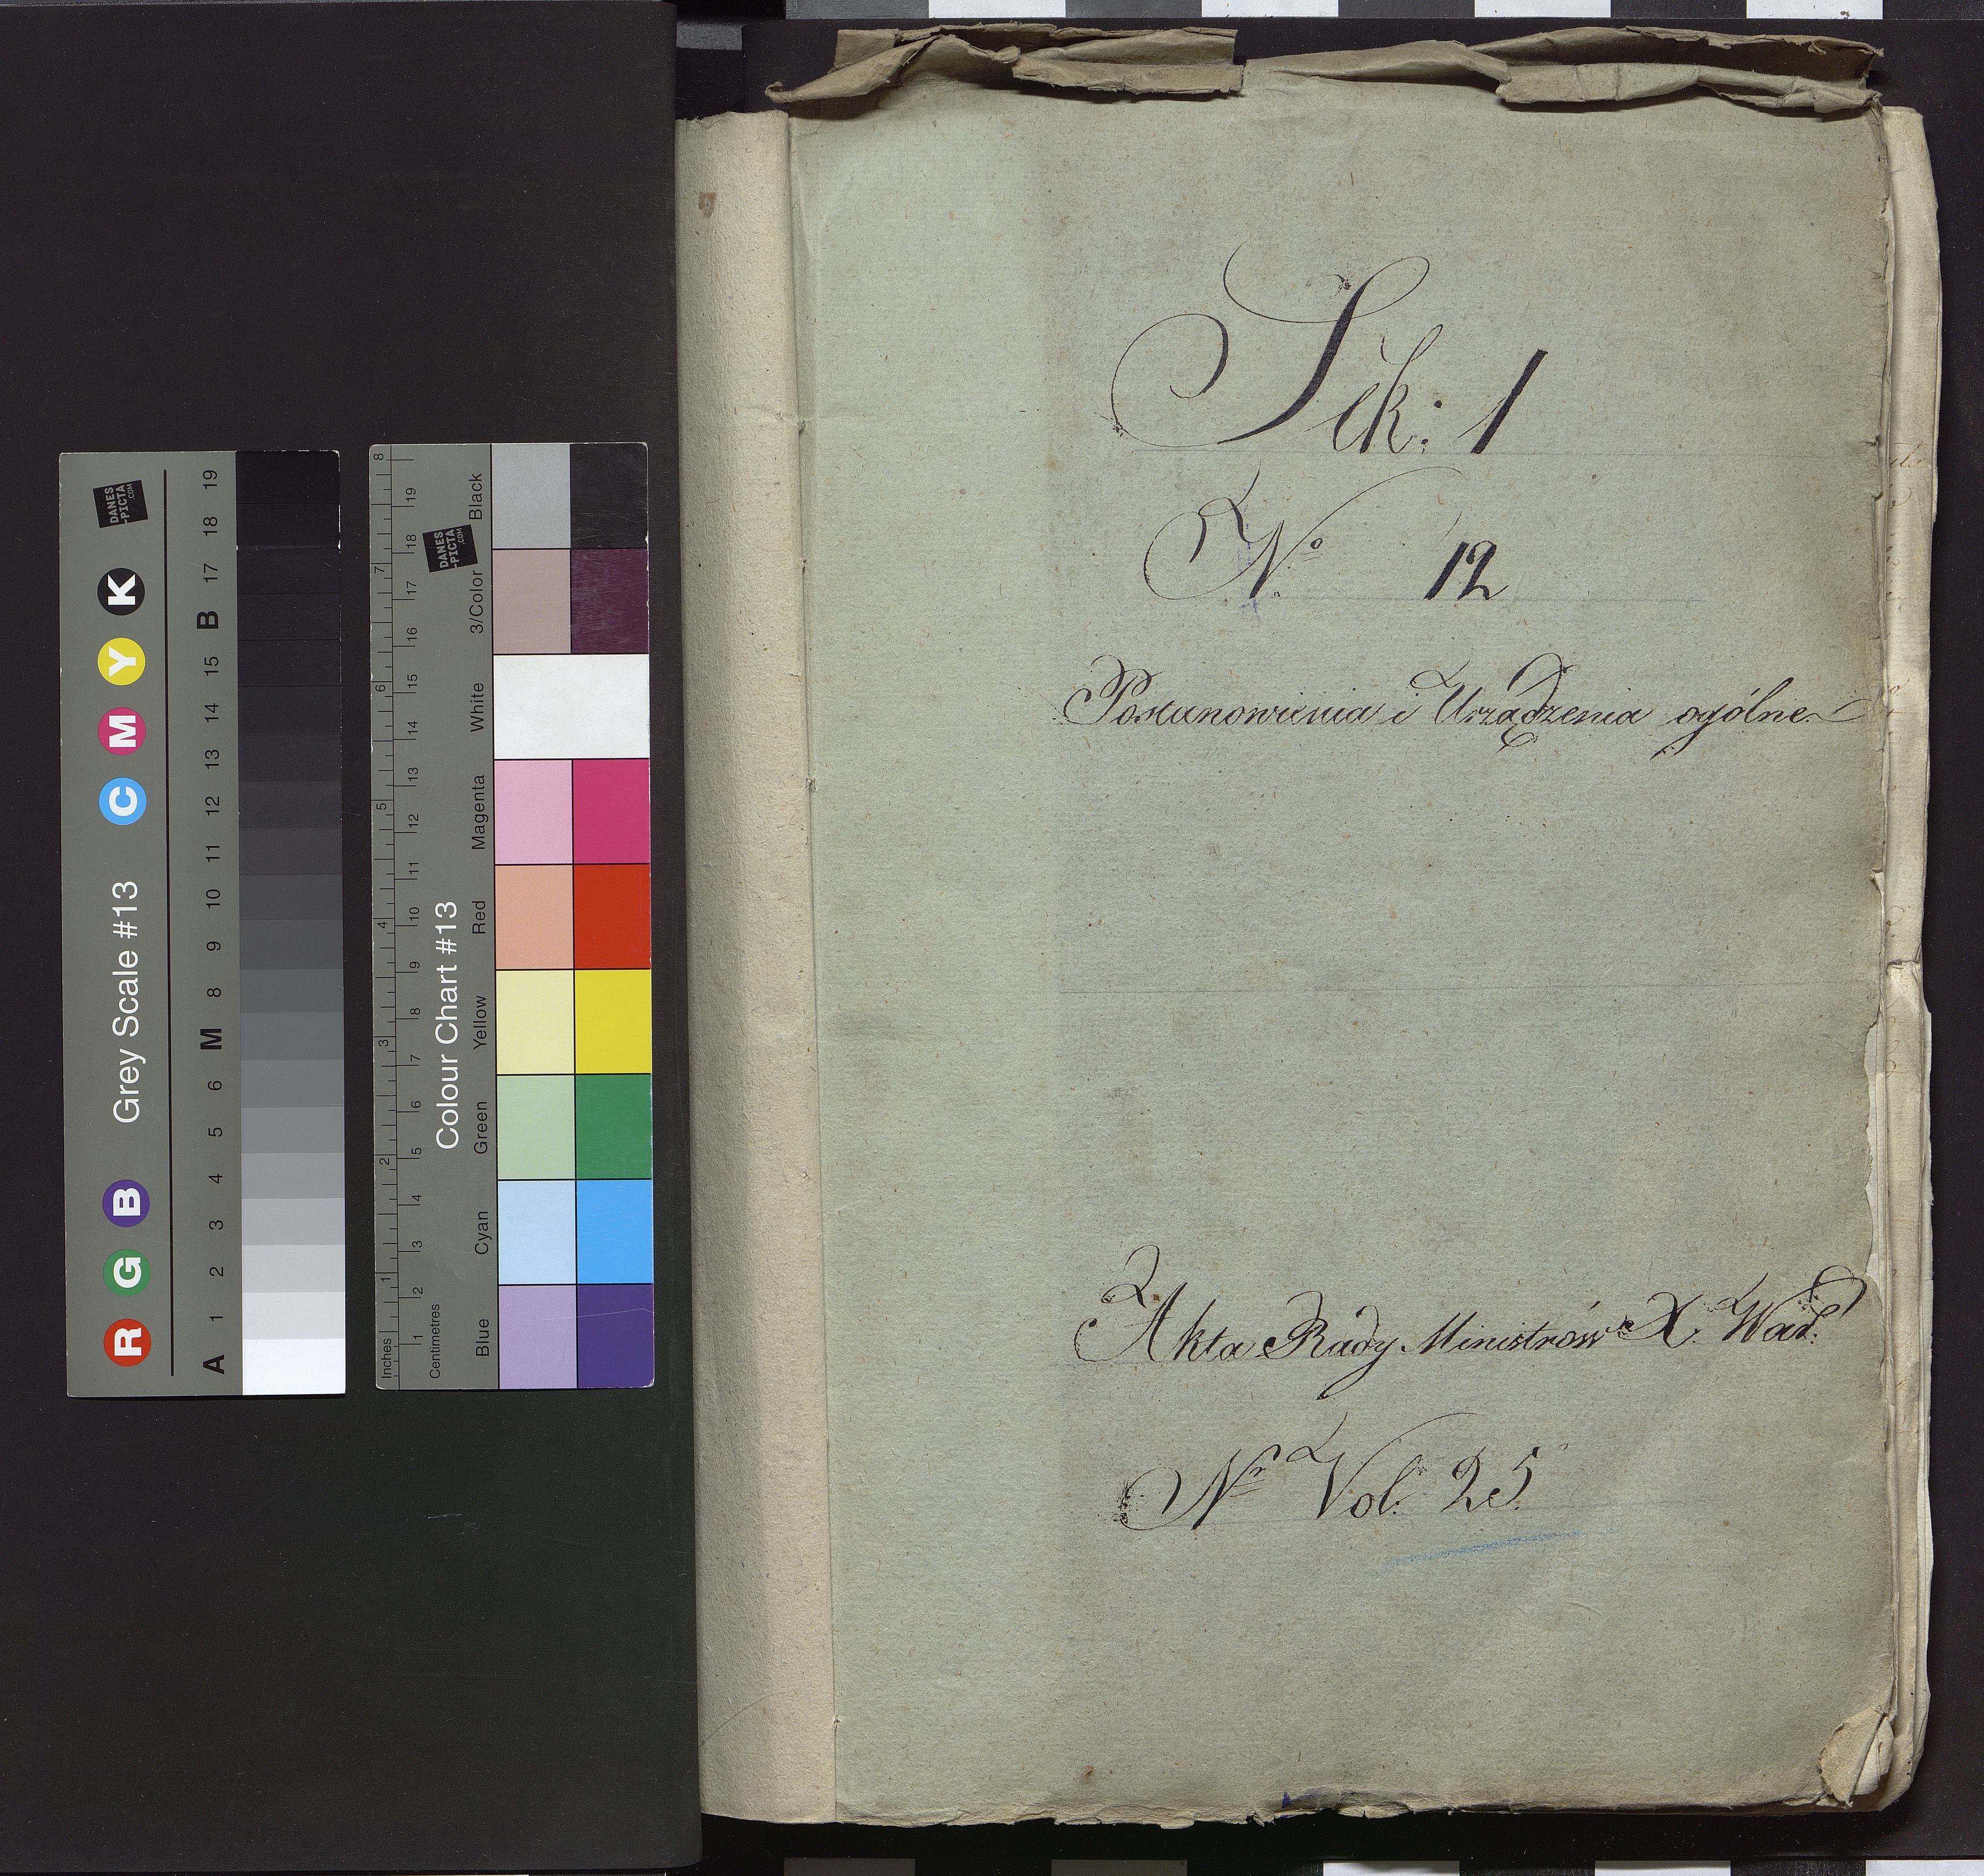 Sek: 1
No 12
Postanowienia i Urządzenia ogólne
Akta Rady Ministrów X. War.
Nr Vol. 25
Grey Scale #13
R G B C M Y K
A 1 2 3 4 5 6 M 8 9 10 11 12 13 14 15 B 17 18 19
DANES
-PICTA
.COM
Colour Chart #13
Blue Cyan Green Yellow Red Magenta White 3/Color Black
Inches 1 2 3 4 5 6 7 8
Centimetres 1 2 3 4 5 6 7 8 9 10 11 12 13 14 15 16 17 18 19
DANES
-PICTA
.COM